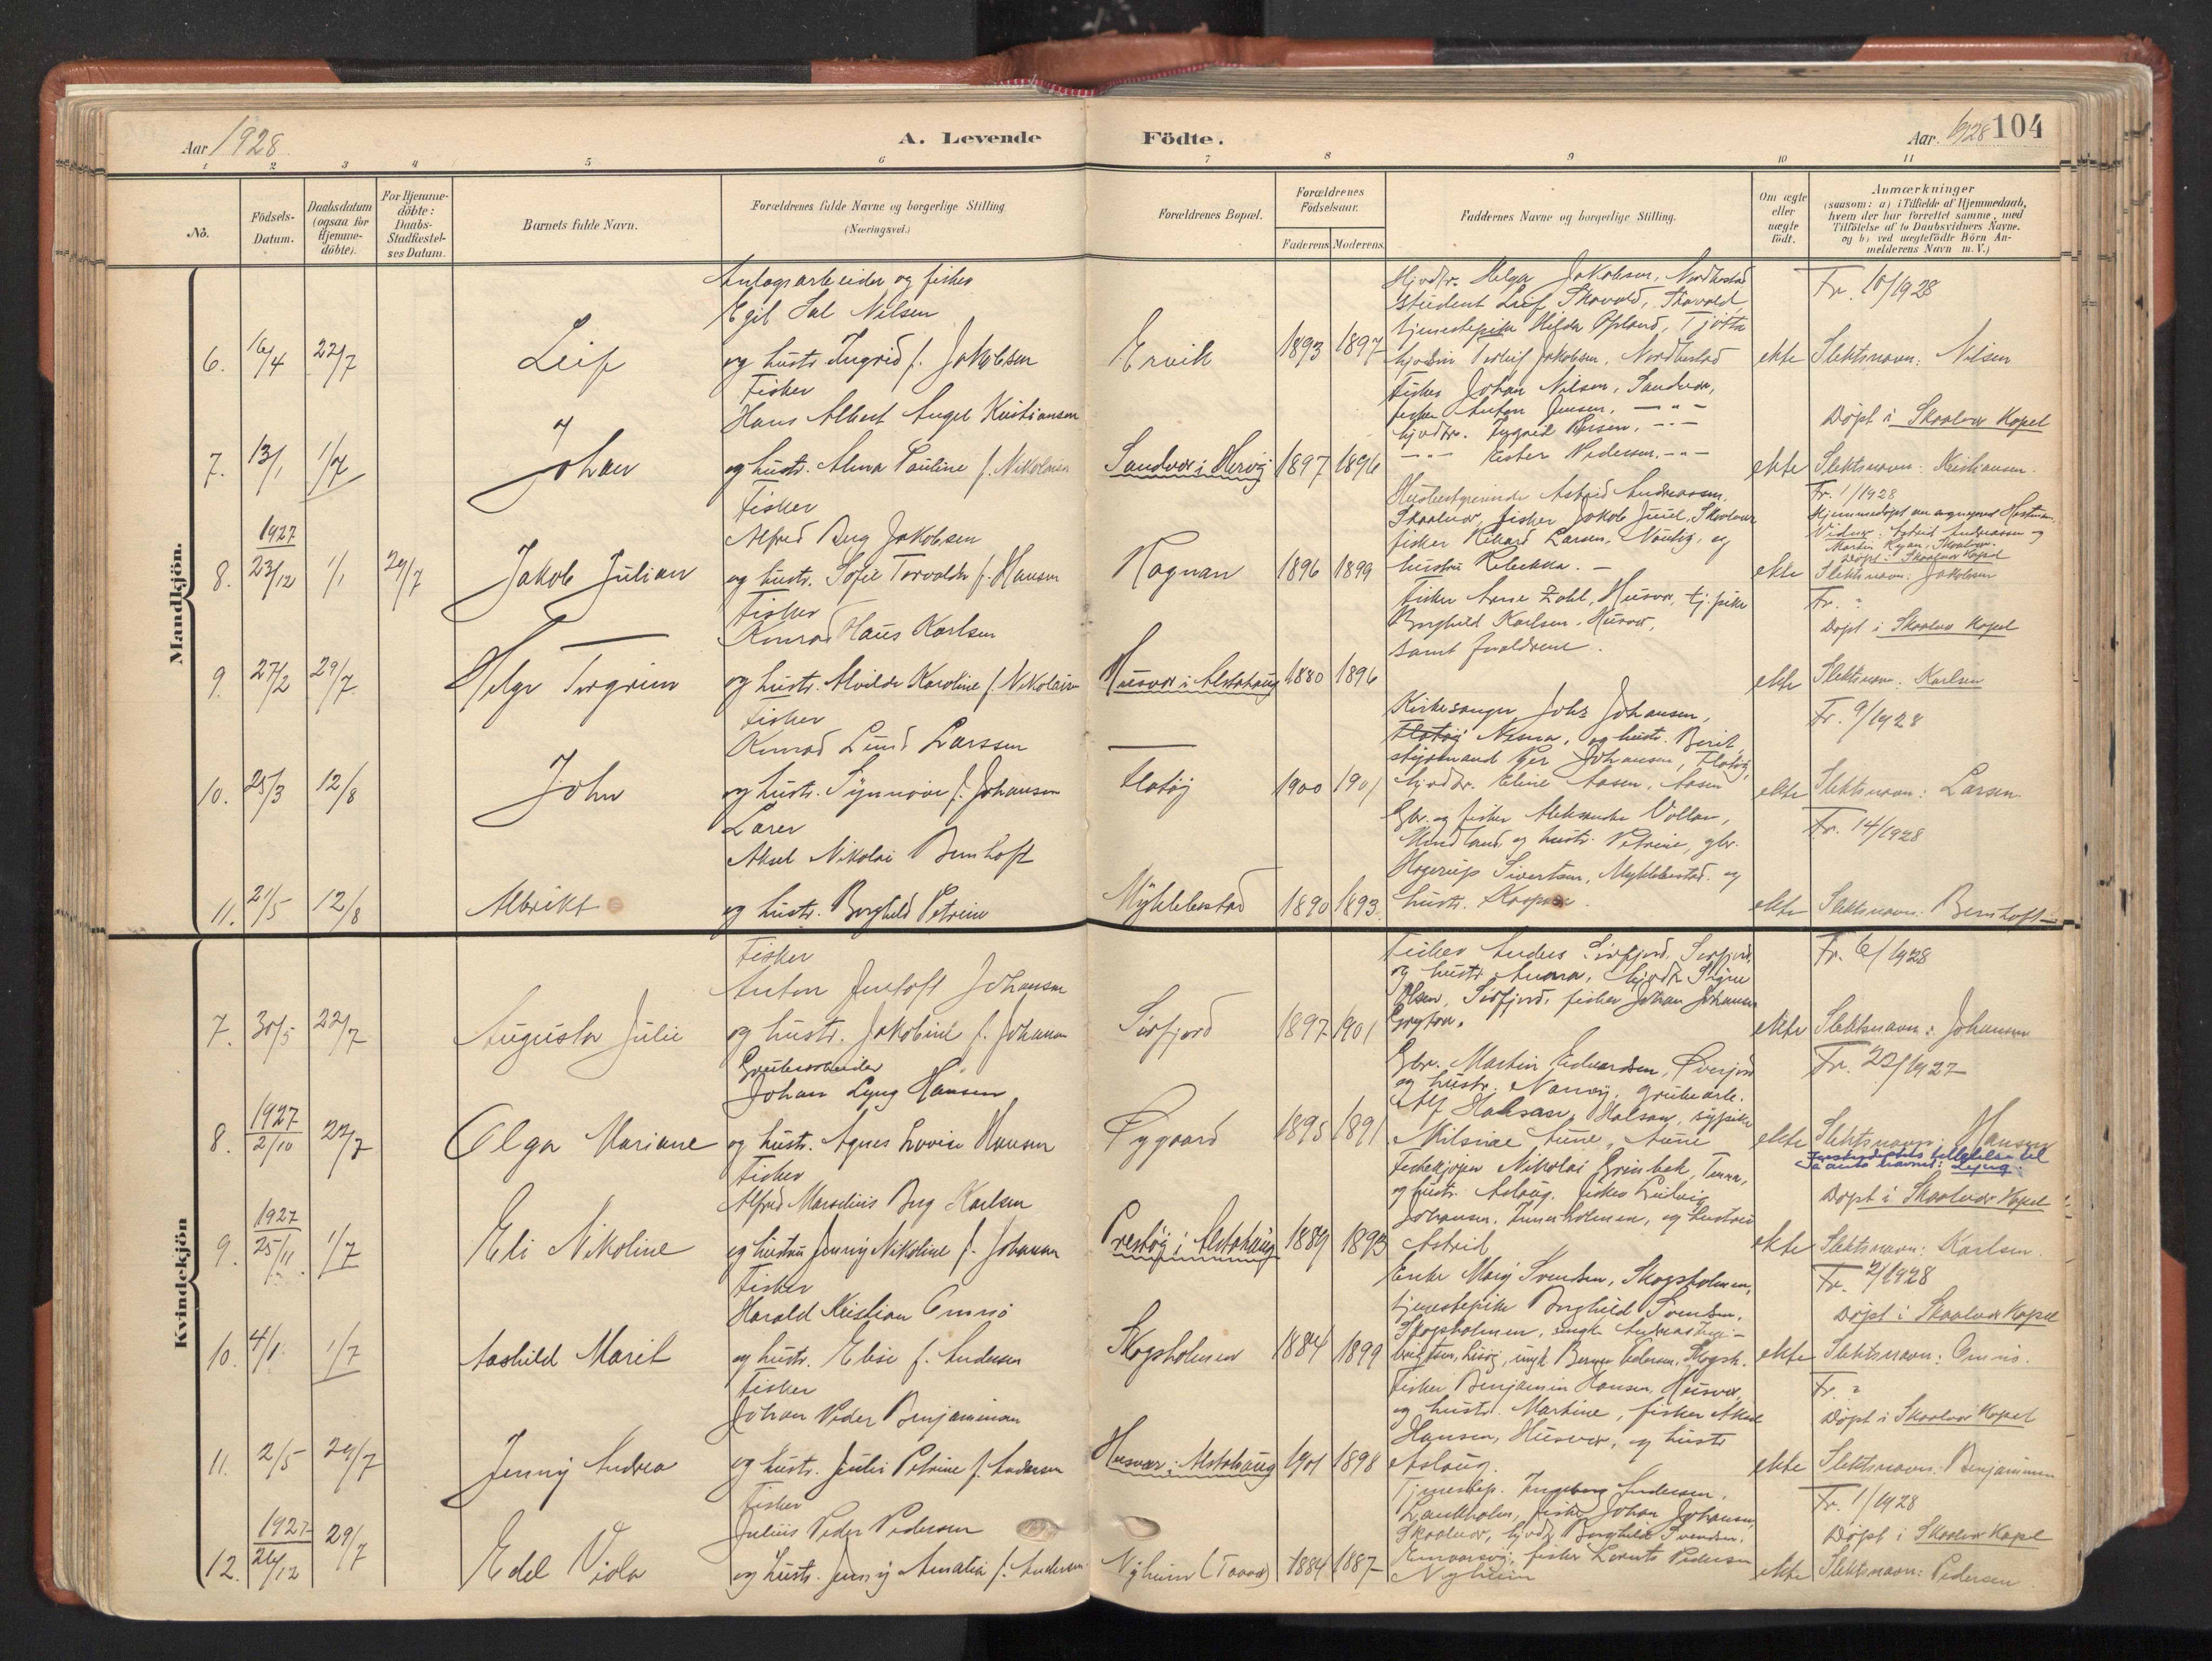 Aar 1928
A. Levende Födte.
Aar 1928 104
1 2 3 4 5 6 7 8 9 10 11
No.
Födsels-Datum.
Daabsdatum (ogsaa for Hjemme-döbte).
For Hjemme-döbte: Daabs-Stadfæstel-ses Datum.
Barnets fulde Navn.
Forældrenes fulde Navne og borgerlige Stilling (Næringsvei.)
Forældrenes Bopæl.
Forældrenes Födselsaar.
Faderens Moderens
Faddernes Navne og borgerlige Stilling.
Om ægte eller uægte födt.
Anmærkninger
(saasom: a) i Tilfælde af Hjemmedaab,
hvem der har forrettet samme, med
Tilföielse af to Daabsvidners Navne.
og b) ved uægtefödte Börn An-
melderens Navn m. V.)
Mandkjön.
Anlægsarbeider og fisker
Egil Nilsen
6. 16/4 22/7 Leif og hustr. Ingrid f. Jakobsen
Ervik 1893 1897
Hjvdtr. Helga Jakobsen, Nordbostad
student Leif Skovold, Skavold,
tjenestepike Hilda Opland, Tjøtta
Jakobsen, Nordbostad
ekte
Fr. 10/1928
Slektsnavn: Nilsen
Fisker
Hans Albert Angel Kristiansen
7. 13/1 1/7 Johan og hustr. Alma Pauline f. Nikolaisen
Sandvær i Herøy 1897 1896
Fisker Johan Nilsen, Sandvær,
fisker Anton Jensen, — " —
hjvdtr. Ingrid
Ester Pedersen, — " —
ekte
Døpt i Skaalvær Kapel
Slektsnavn: Kristiansen.
Fisker
Alfred Berg Jakobsen
8. 1927 23/12 1/1 29/7 Jakob Julian og hustr. Sofie Torvalda f. Hansen
1896 1899
Husbestyrerinde Astrid Andreassen,
Skaalvær, fisker Jakob Juul, Skaalvær
fisker Rikard Larsen, og
hustru Rebekka. —
ekte
Fr. 1/1928
Hjemmedøpt av
Vidner: Astrid Andreassen og
Martin Skaalvær.
Døpt i Skaalvær Kapel
Slektsnavn: Jakobsen
Fisker
Konrad Hans Karlsen
9. 27/2 29/7 Helge Torgrim og hustr. Alvilde Karoline f. Nikolaisen
Husvær i Alstahaug 1880 1896
Fisker Arne Zahl, Husvær, tj.pike
Borghild Karlsen, Husvær,
samt forældrene.
ekte
Fr. ?
Døpt i Skaalvær Kapel
Slektsnavn: Karlsen
Fisker
Konrad Lund Larssen
10. 25/3 12/8 John og hustr. Synnøve f. Johansen
Flatøy 1900 1901
Kirkesanger Johs Johansen,
Flatøy Nesna, og hustr. Berit,
styrmand Per Johansen, Flatøy,
hjvdtr. Eline Aasen, Aasen
ekte
Fr. 9/1928
Slektsnavn: Larsen
Lærer
Aksel Nikolai Bernhoft
11. 21/5 12/8 Albrikt og hustr. Borghild Petrine
Myklebostad 1890 1893.
Gbr. og fisker Aleksander Vollan,
Mindland og hustr. Petrine, gbr.
Hagerup Sivertsen, Myklebostad. og
hustr. Kaspara.
ekte
Fr. 14/1928
Slektsnavn: Bernhoft
Kvindekjön
Fisker
Anton Jentoft Johansen
7. 30/5 22/7 Augusta Julie og hustr. Jakobine f. Johansen
Sørfjord 1897 1901
Fisker Anders Sørfjord, Sørfjord,
og hustr. Anna, hjvdtr. Signe
Olsen, Sørfjord, fisker Johan Johansen
ekte
Fr. 6/1928
Slektsnavn: Johansen
Grubearbeider
Johan Lyng Hansen
8. 1927 2/10 22/7 Olga Mariane og hustr. Agnes Lovise Hansen
Øygaard 1895 1891
Gbr. Martin Edvardsen,
og hustr. Nancy, grubearb.
Alf Halsan, Halsan, sypike
Aune, Aune
ekte
Fr. 22/1927
Slektsnavn: Hansen
tillatelse til
navnet: Lyng.
Fisker
Alfred Marselius Berg Karlsen
9. 1927 25/11 1/7 Eli Nikoline og hustru Jenny Nikoline f. Johansen
Prestøy i Alstahaug 1889 1893
Fiskekjøper Nikolai Grønbek, Tenna,
og hustr. Aslaug, fisker Ludvig
Johansen, Innerholmen, og hustru
Astrid
ekte
Døpt i Skaalvær Kapel
Slektsnavn: Karlsen.
Fisker
Harald Kristian Omnø
10. 4/1 1/7 Aashild Marit og hustr. Elise f. Andersen
Skogsholmen 1884 1899
Enke Marij Svendsen, Skogsholmen,
tjenestepike Borghild Svendsen,
Skogsholmen, ungk. Andreas
ungk. Berner Pedersen, Skogsh.
ekte
Fr. 2/1928
Døpt i Skaalvær Kapel
Slektsnavn: Omnø.
Fisker
Johan Peder Benjaminsen
11. 2/5 29/7 Jenny Andrea og hustr. Julie Petrine f. Andersen
Husvær i Alstahaug 1901 1898
Fisker Benjamin Hansen, Husvær,
og hustr. Martine, fisker Aksel
Hansen, Husvær, og hustr.
Aslaug.
ekte
Fr. ?
Døpt i Skaalvær Kapel
Slektsnavn: Benjaminsen
Fisker
Julius Peder Pedersen
12. 1927 26/12 29/7 Edel Viola og hustr. Jenny Amalia f. Andersen
Nyheim 1884 1887
Tjenestep. Ingeborg Andersen,
fisker Johan Johansen,
Skaalvær, hjvdtr. Borghild Svendsen,
fisker Pedersen
Nyheim
ekte
Fr. 1/1928
Døpt i Skaalvær Kapel
Slektsnavn: Pedersen.